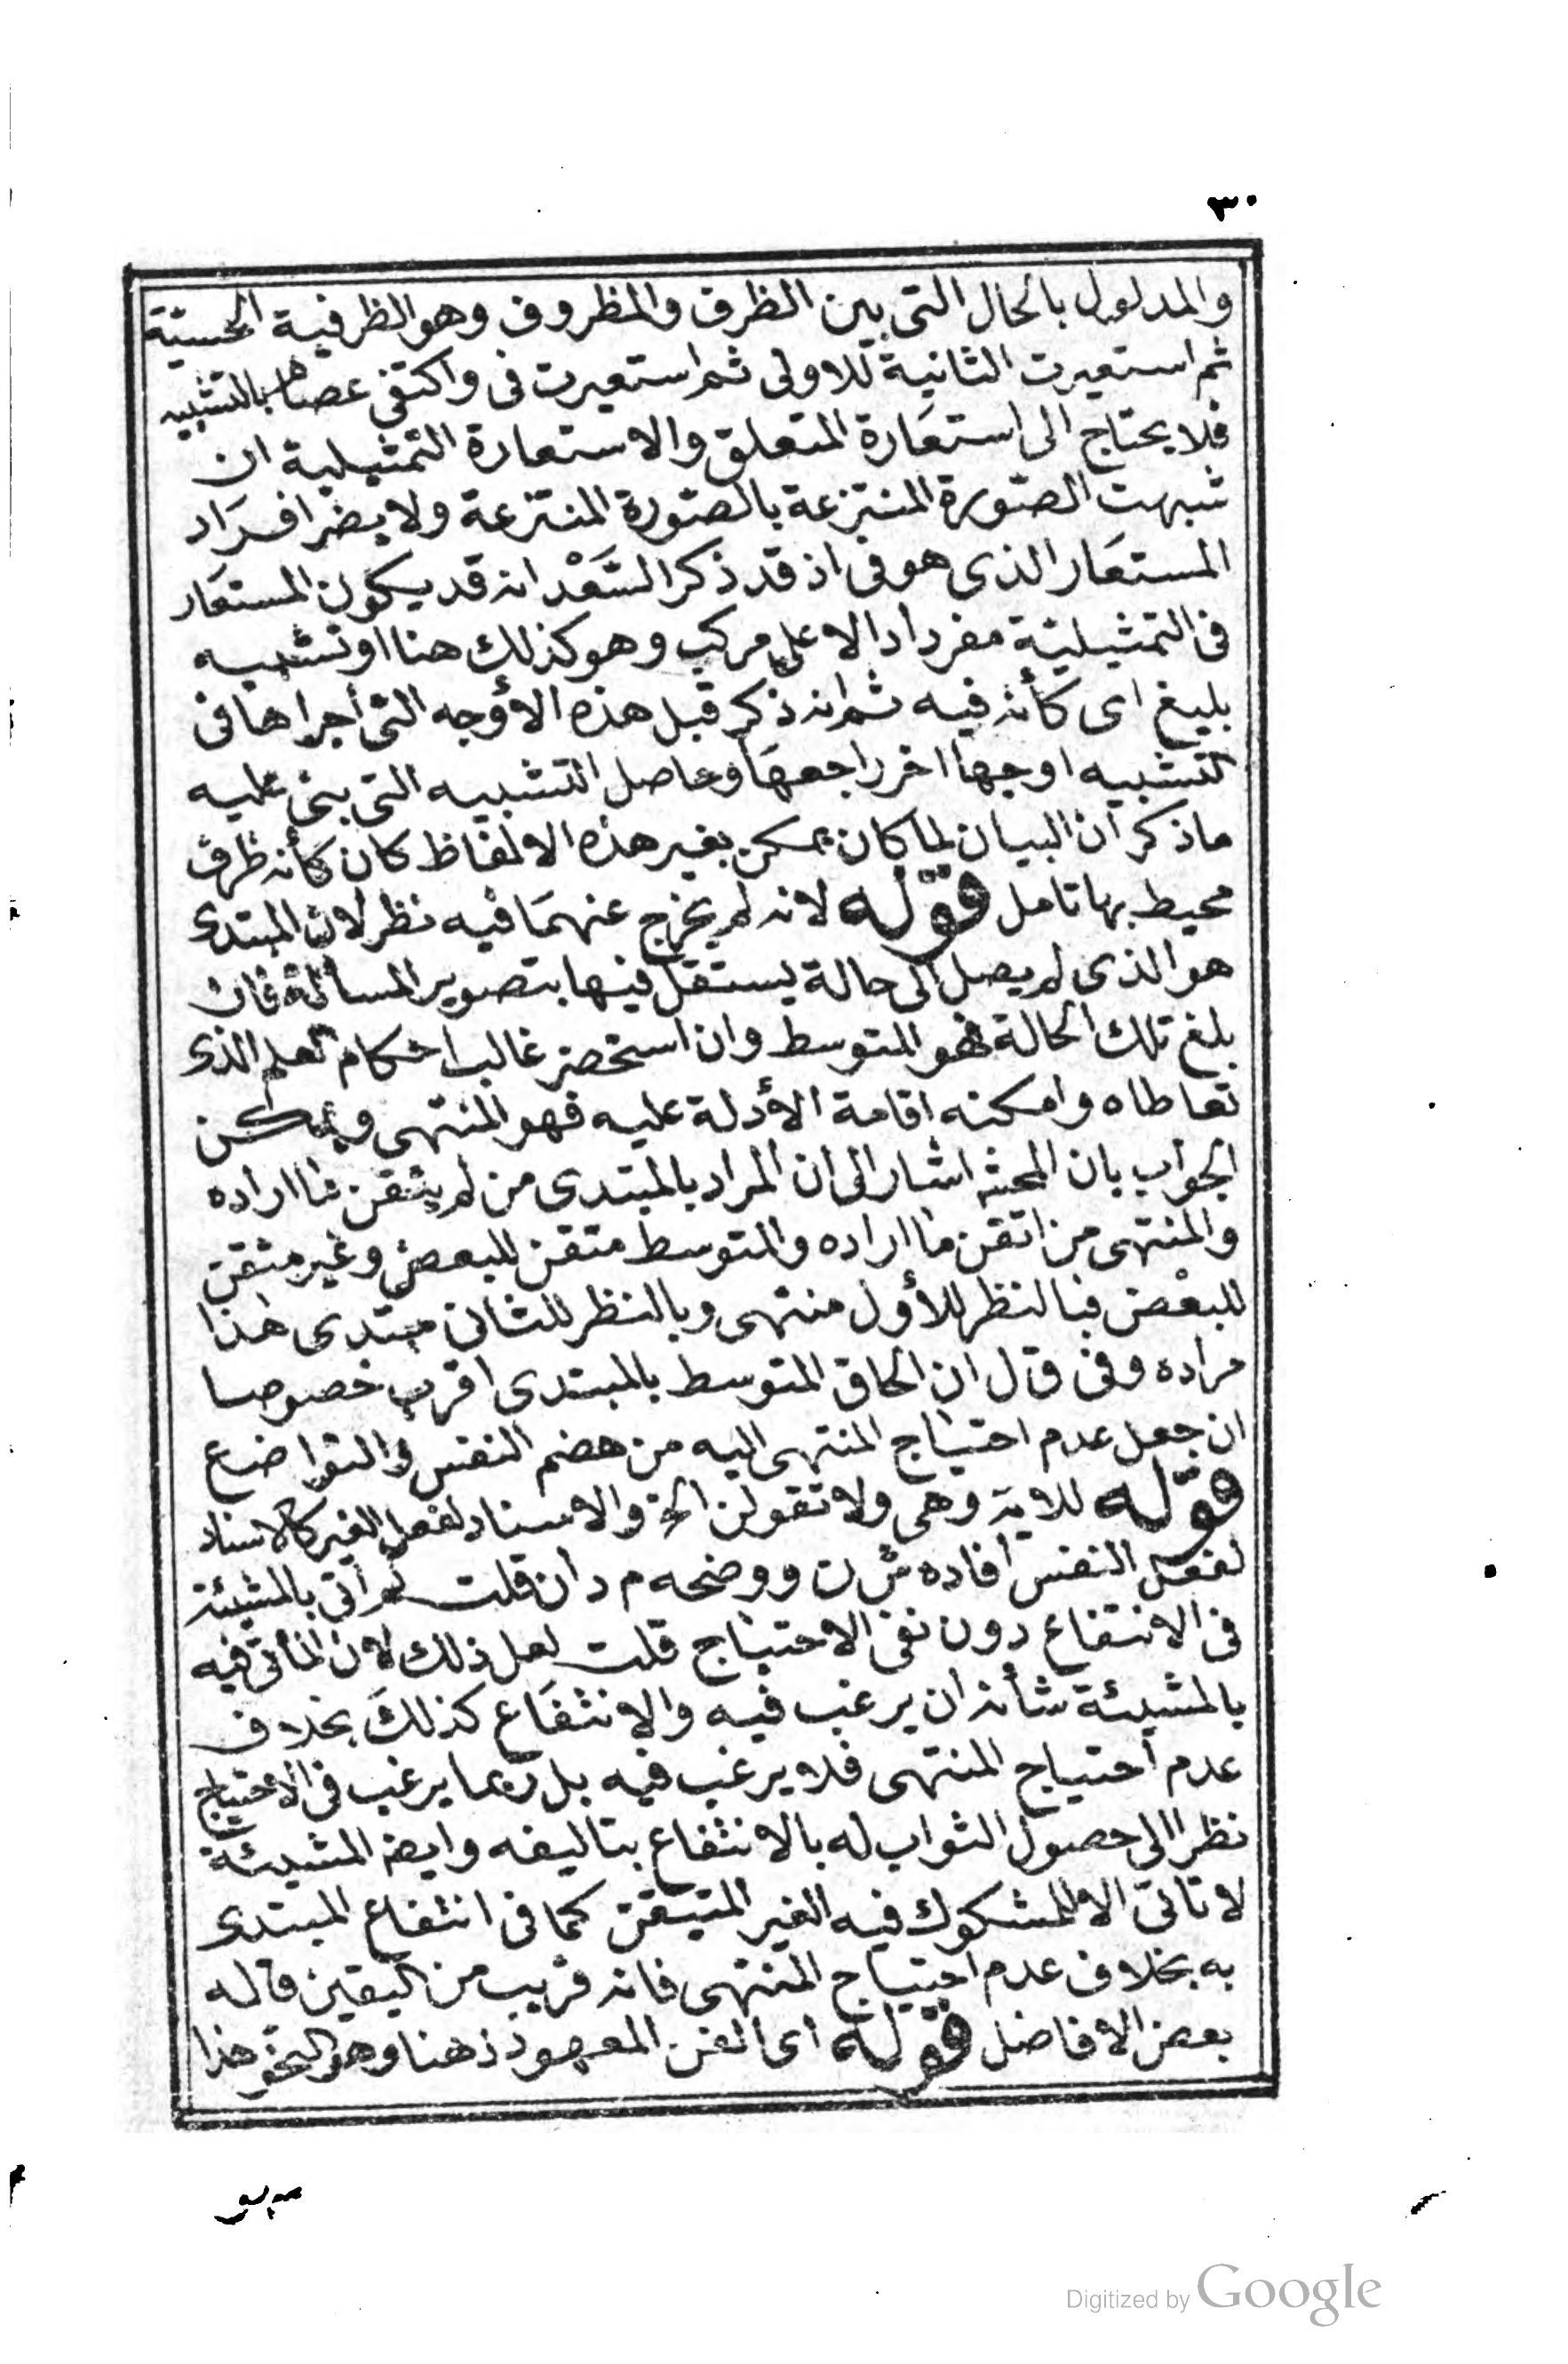 ٣٠
والمدلول بالحال التى بين الظرف والمظروف وهو الظرفية الحسية
ثم استعيرت الثانية للاولى ثم استعيرت فى واكتفى عصام بالتشبيه
فلا يحتاج الى استعارة المتعلق والاستعارة التمثيلية ان
شبهت الصورة المنتزعة بالصورة المنتزعة ولا يضر افراد
المستعار الذى هو فى اذ قد ذكر السَّعْد انه قد يكون المستعار
فى التمثيلية مفردا دالا على مركب وهو كذلك هنا او تشبيه
بليغ اى كأنه فيه ثم انه ذكر قبل هذه الأوجه التى أجراها فى
التشبيه اوجها اخر راجعها وحاصل التشبيه التى بنى عليه
ماذكر ان البيان لما كان يمكن بغير هذه الالفاظ كان كأنه ظرف
محيط بها تامل قوله لانه لم يخرج عنهما فيه نظر لان المبتدى
هو الذى لم يصل الى حالة يستقل فيها بتصوير المسألة فان
بلغ تلك الحالة فهو المتوسط وان استحضر غالب احكام العلم الذى
تعاطاه وامكنه اقامة الأدلة عليه فهو المنتهى ويمكن
الجواب بان المحشى اشار الى ان المراد بالمبتدى من لم يتقن ما اراده
والمنتهى من اتقن ما اراده والمتوسط متقن للبعض وغير متقن
للبعض فبالنظر للأول منتهى وبالنظر للثانى مبتدى هذا
مراده وفى ق ل ان الحاق المتوسط بالمبتدى اقرب خصوصا
ان جعل عدم احتياج المنتهى اليه من هضم النفس والتواضع
قوله للاية وهى ولا تقولن الخ والاسناد لفعل الغير كالاسناد
لفعل النفس افاده ش ن ووضحه م د ان قلت لم أتى بالمشيئة
فى الانتفاع دون نفى الاحتياج قلت لعل ذلك لان المأتى فيه
بالمشيئة شأنه ان يرغب فيه والانتفاع كذلك بخلاف
عدم احتياج المنتهى فلا يرغب فيه بل ربما يرغب فى الاحتياج
نظرا الى حصول الثواب له بالانتفاع بتاليفه وايضا المشيئة
لا تاتى الا للمشكوك فيه الغير المتيقن كما فى انتفاع المبتدى
به بخلاف عدم احتياج المنتهى فانه قريب من اليقين قاله
بعض الافاضل قوله اى الفن المعهود ذهنا وهو النحو هذا
Digitized by Google